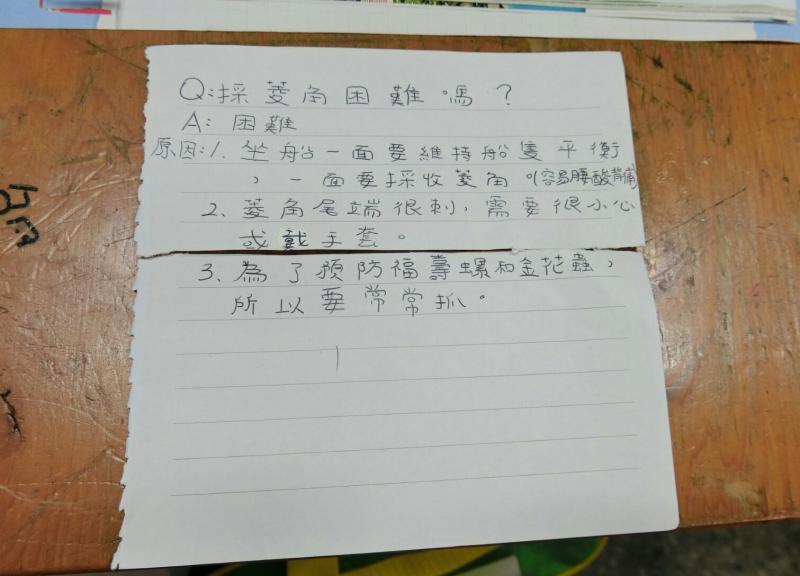 Q:採菱角困難嗎？
A：困難
原因：1. 坐船一面要維持船隻平衡
，一面要採收菱角。(容易腰酸背痛)
2、菱角尾端很刺，需要很小心
或戴手套。
3、為了預防福壽螺和金花蟲，
所以要常常抓。